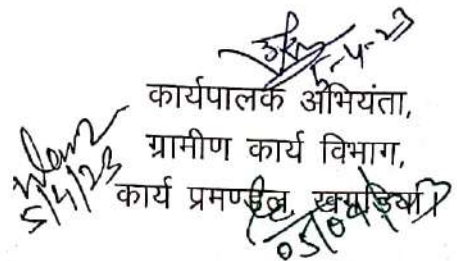 5-4-23
कार्यपालक अभियंता,
ग्रामीण कार्य विभाग,
कार्य प्रमण्डल, खगड़िया।
5/4/23